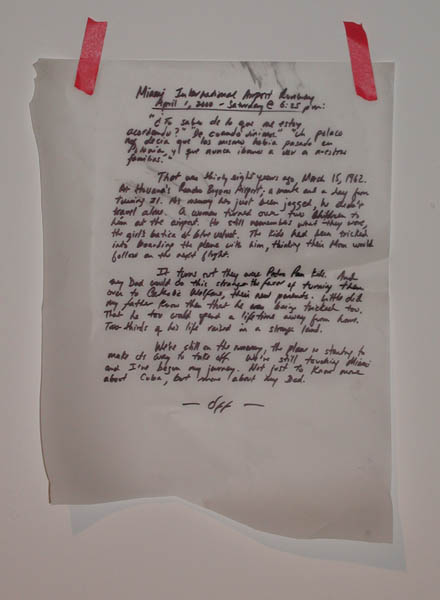 Miami International Airport Runway
April 1, 2000 - Saturday @ 6:25 pm:
"¿Tu sabes de lo que me estoy
acordando?" "De cuando vinimos" "Un polaco
nos decia que los mismo habia pasado en
Polonia, y que nunca ibamos a ver a nuestras
familias."
That was thirty eight years ago, March 15, 1962.
At Havana's Airport, a month and a day from
turning 21. As memory has just been jogged, he didn't
travel alone. A woman turned over two children to
him at the airport. He still remembers what they wore,
the girl's batica of blue velvet. The kids had been tricked
into boarding the plane with him, thinking their Mom would
follow on the next flight.
It turns out they were Pedro Pan kids. And
my Dad would do this stranger the favor of turning them
over to Catholic Welfare, their new parents. Little did
my father know then that he was being tricked too.
That he too would spend a lifetime away from home.
Two-thirds of his life raised in a strange land.
We're still on the runway, the plane is starting to
make its way to take off. We're still touching Miami
and I've begun my journey. Not just to know more
about Cuba, but more about my Dad.
— Off —